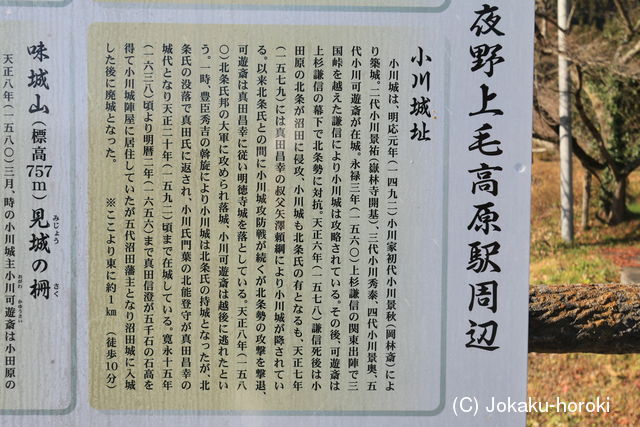 夜野上毛高原駅周辺
小川城址
小川城は、明応元年(一四九二)小川家初代小川景秋(岡林斎)によ
り築城。二代小川景祐(嶽林寺開基)、三代小川秀泰、四代小川景奥、五
代小川可遊斎が在城。永禄三年(一五六〇)上杉謙信の関東出陣で三
国峠を越えた謙信により小川城は攻略されている。その後、可遊斎は
上杉謙信の幕下で北条勢に対抗。天正六年(一五七八)謙信死後は小
田原の北条が沼田に侵攻、小川城も北条氏の有となるも、天正七年
(一五七九)には真田昌幸の叔父矢澤頼綱により小川城が降されてい
る。以来北条氏との間に小川城攻防戦が続くが北条勢の攻撃を撃退、
可遊斎は真田昌幸に従い明徳寺城を落としている。天正八年(一五八
〇)北条氏邦の大軍に攻められ落城、小川可遊斎は越後に逃れたとい
う。一時 豊臣秀吉の斡旋により小川城は北条氏の持城となったが、北
条氏の没落で真田氏に返され、小川氏門葉の北能登守が真田昌幸の
城代となり天正二十年(一五九二)頃まで在城している。寛永十五年
(一六三八)頃より明暦二年(一六五六)まで真田信澄が五千石の石高を
得て小川城陣屋に居住していたが五代沼田藩主となり沼田城に入城
した後に廃城となった。 ※ここより東に約1km (徒歩10分)
味城山(標高757m)見城の柵
みじょう さく
天正八年(一五八〇)三月、時の小川城主小川可遊斎は小田原の
おがわ かゆうさい
(C) Jokaku-horoki